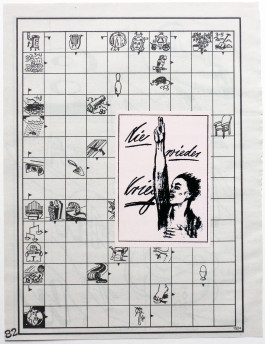 Nie
wieder
Krieg
82